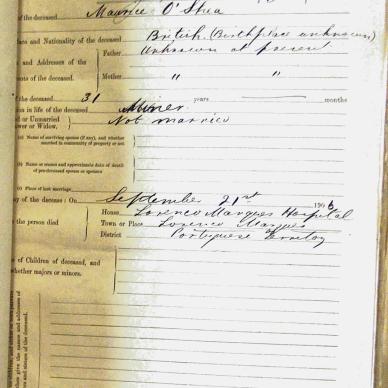 of the deceased Maurice O'Shea
lace and Nationality of the deceased British (Birthplace unknown)
s and Addresses of the Father Unknown at present
ents of the deceased. Mother " "
f the deceased 31 years months
ion in life of the deceased Miner
d or Unmarried Not married
ower or Widow,)
(a) Name of surviving spouse (if any), and whether
married in community of property or not
(b) Name or names and approximate date of death
of pre-deceased spouse or spouses
(c) Place of last marriage
y of the decease: On September 21st 1906
House Lorenco Marques Hospital
e the person died Town or Place Lorenco Marques
District Portuguese Territory
s of Children of deceased, and
whether majors or minors.